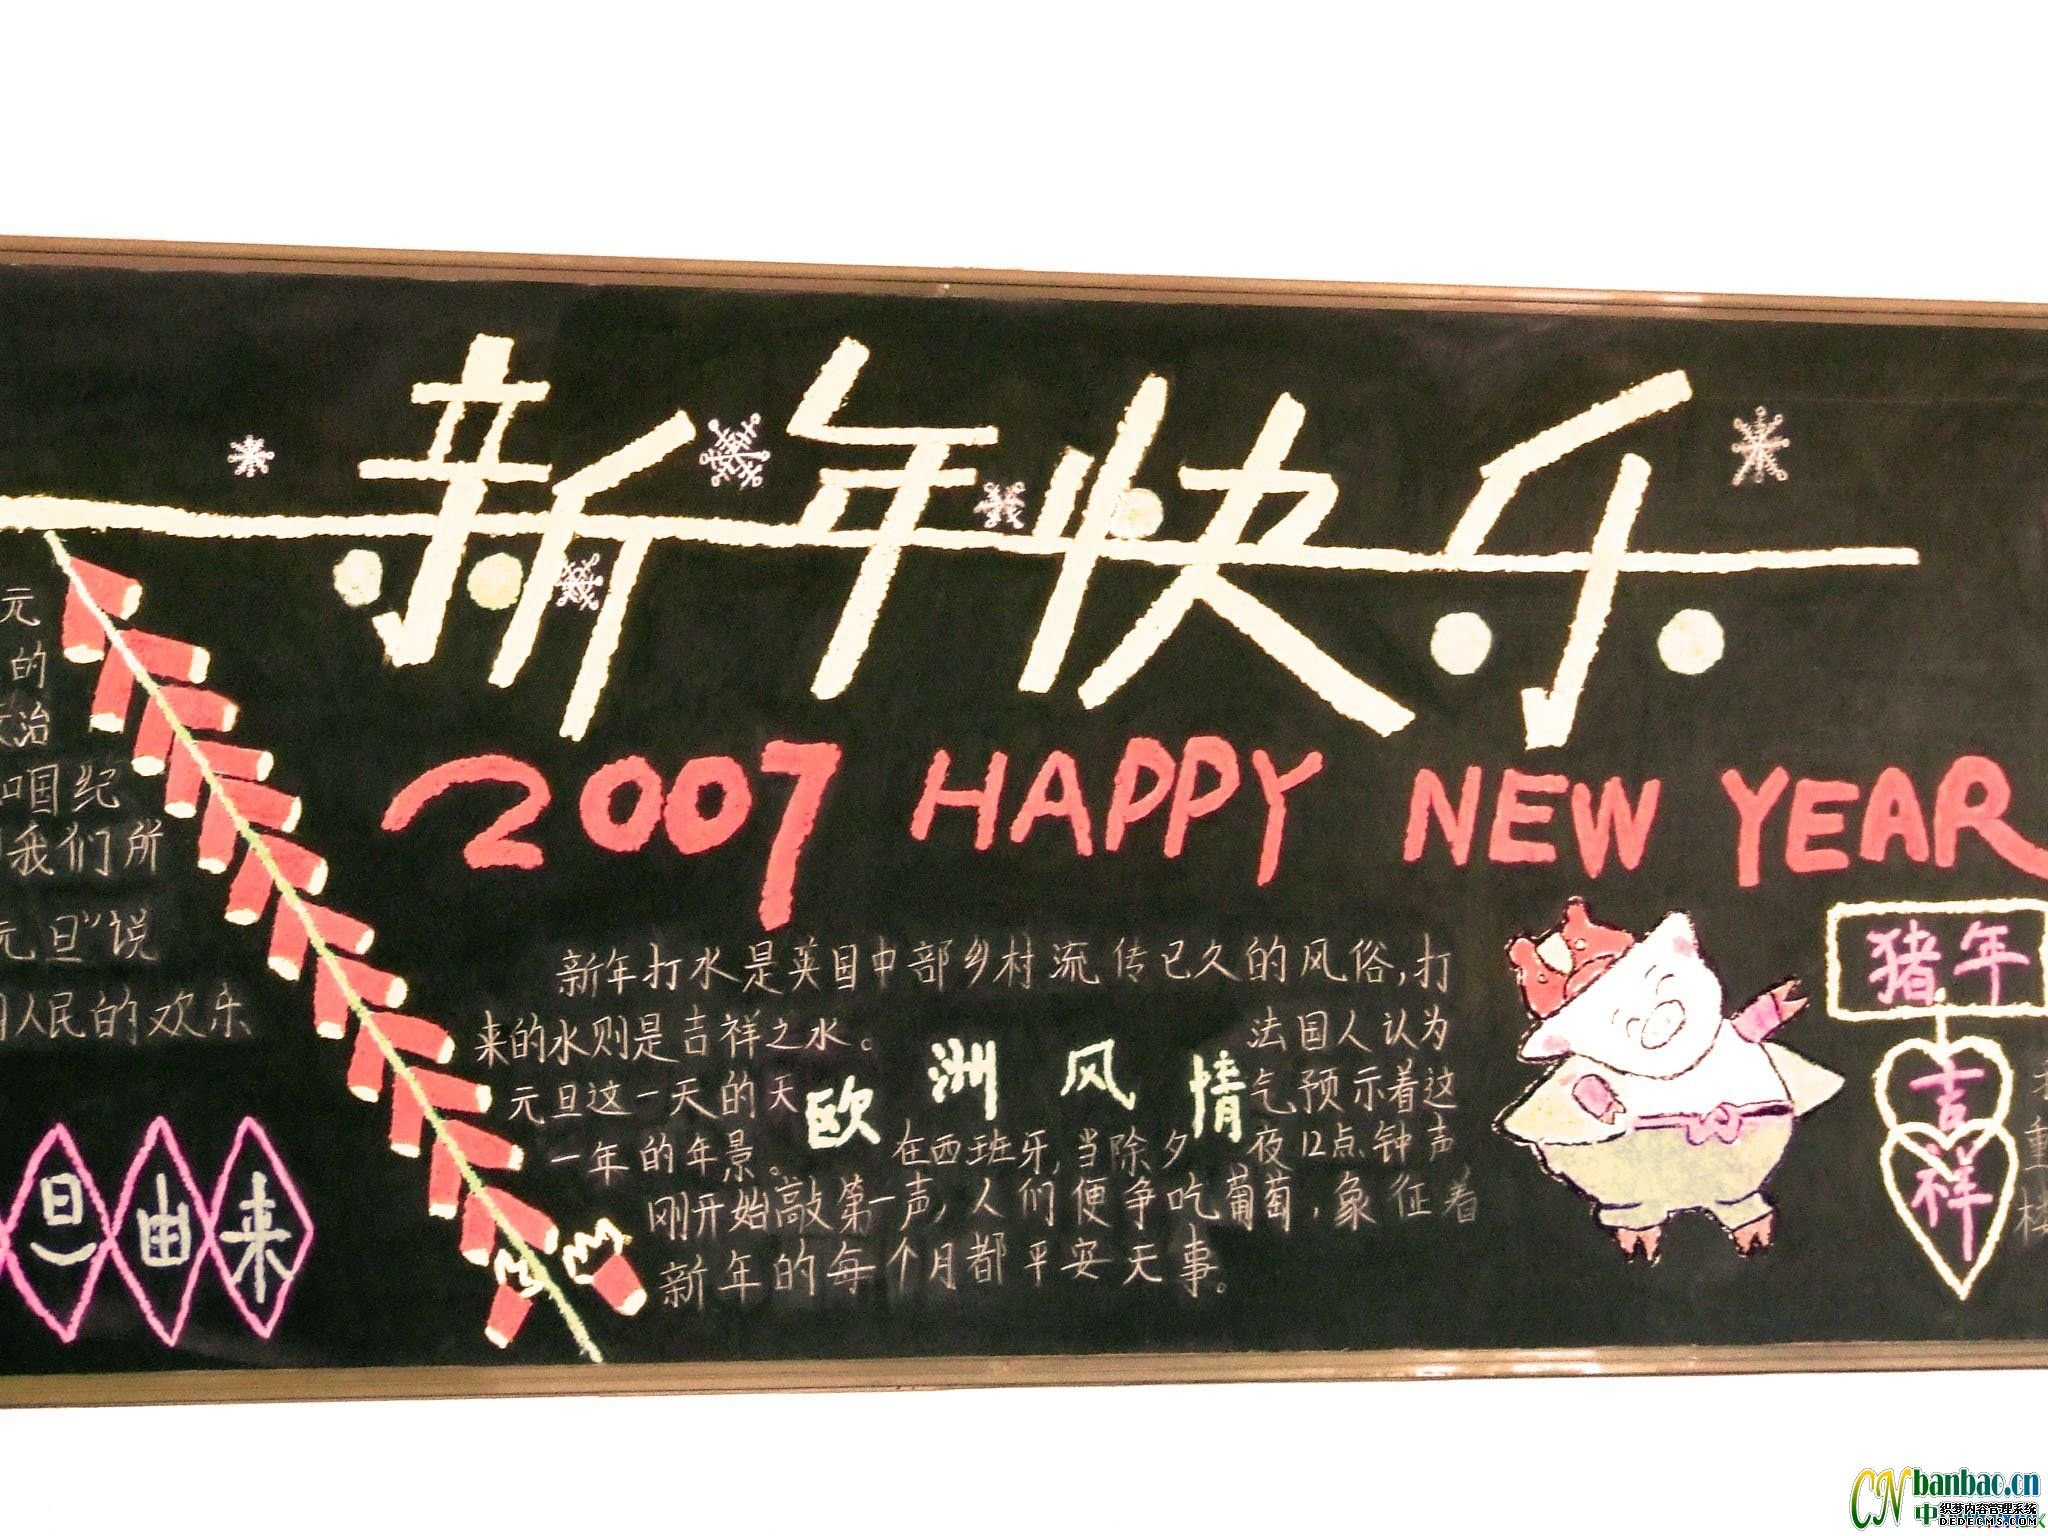 新年快乐
2007 HAPPY NEW YEAR
元
的
治
国纪
我们所
元旦"说
人民的欢乐
旦由来
新年打水是英国中部乡村流传已久的风俗,打
来的水则是吉祥之水。
法国人认为
元旦这一天的天
气预示着这
一年的年景。
欧洲风情
在西班牙,当除夕
夜12点钟声
刚开始敲第一声,人们便争吃葡萄,象征着
新年的每个月都平安无事。
猪年
吉
祥
重
CN banbao.cn
中
织梦内容管理系统
DEDECMS.COM